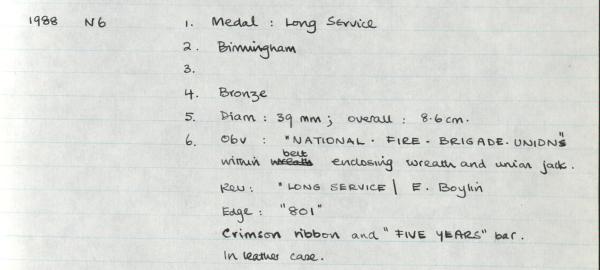 1988 N6 1. Medal : Long Service
2. Birmingham
3.
4. Bronze
5. Diam : 39 mm ; overall : 8.6 cm.
6. Obv : "NATIONAL · FIRE · BRIGADE · UNIONS"
within belt enclosing wreath and union jack.
Rev : "LONG SERVICE | E. Boylin
Edge : "801"
Crimson ribbon and "FIVE YEARS" bar.
In leather case.